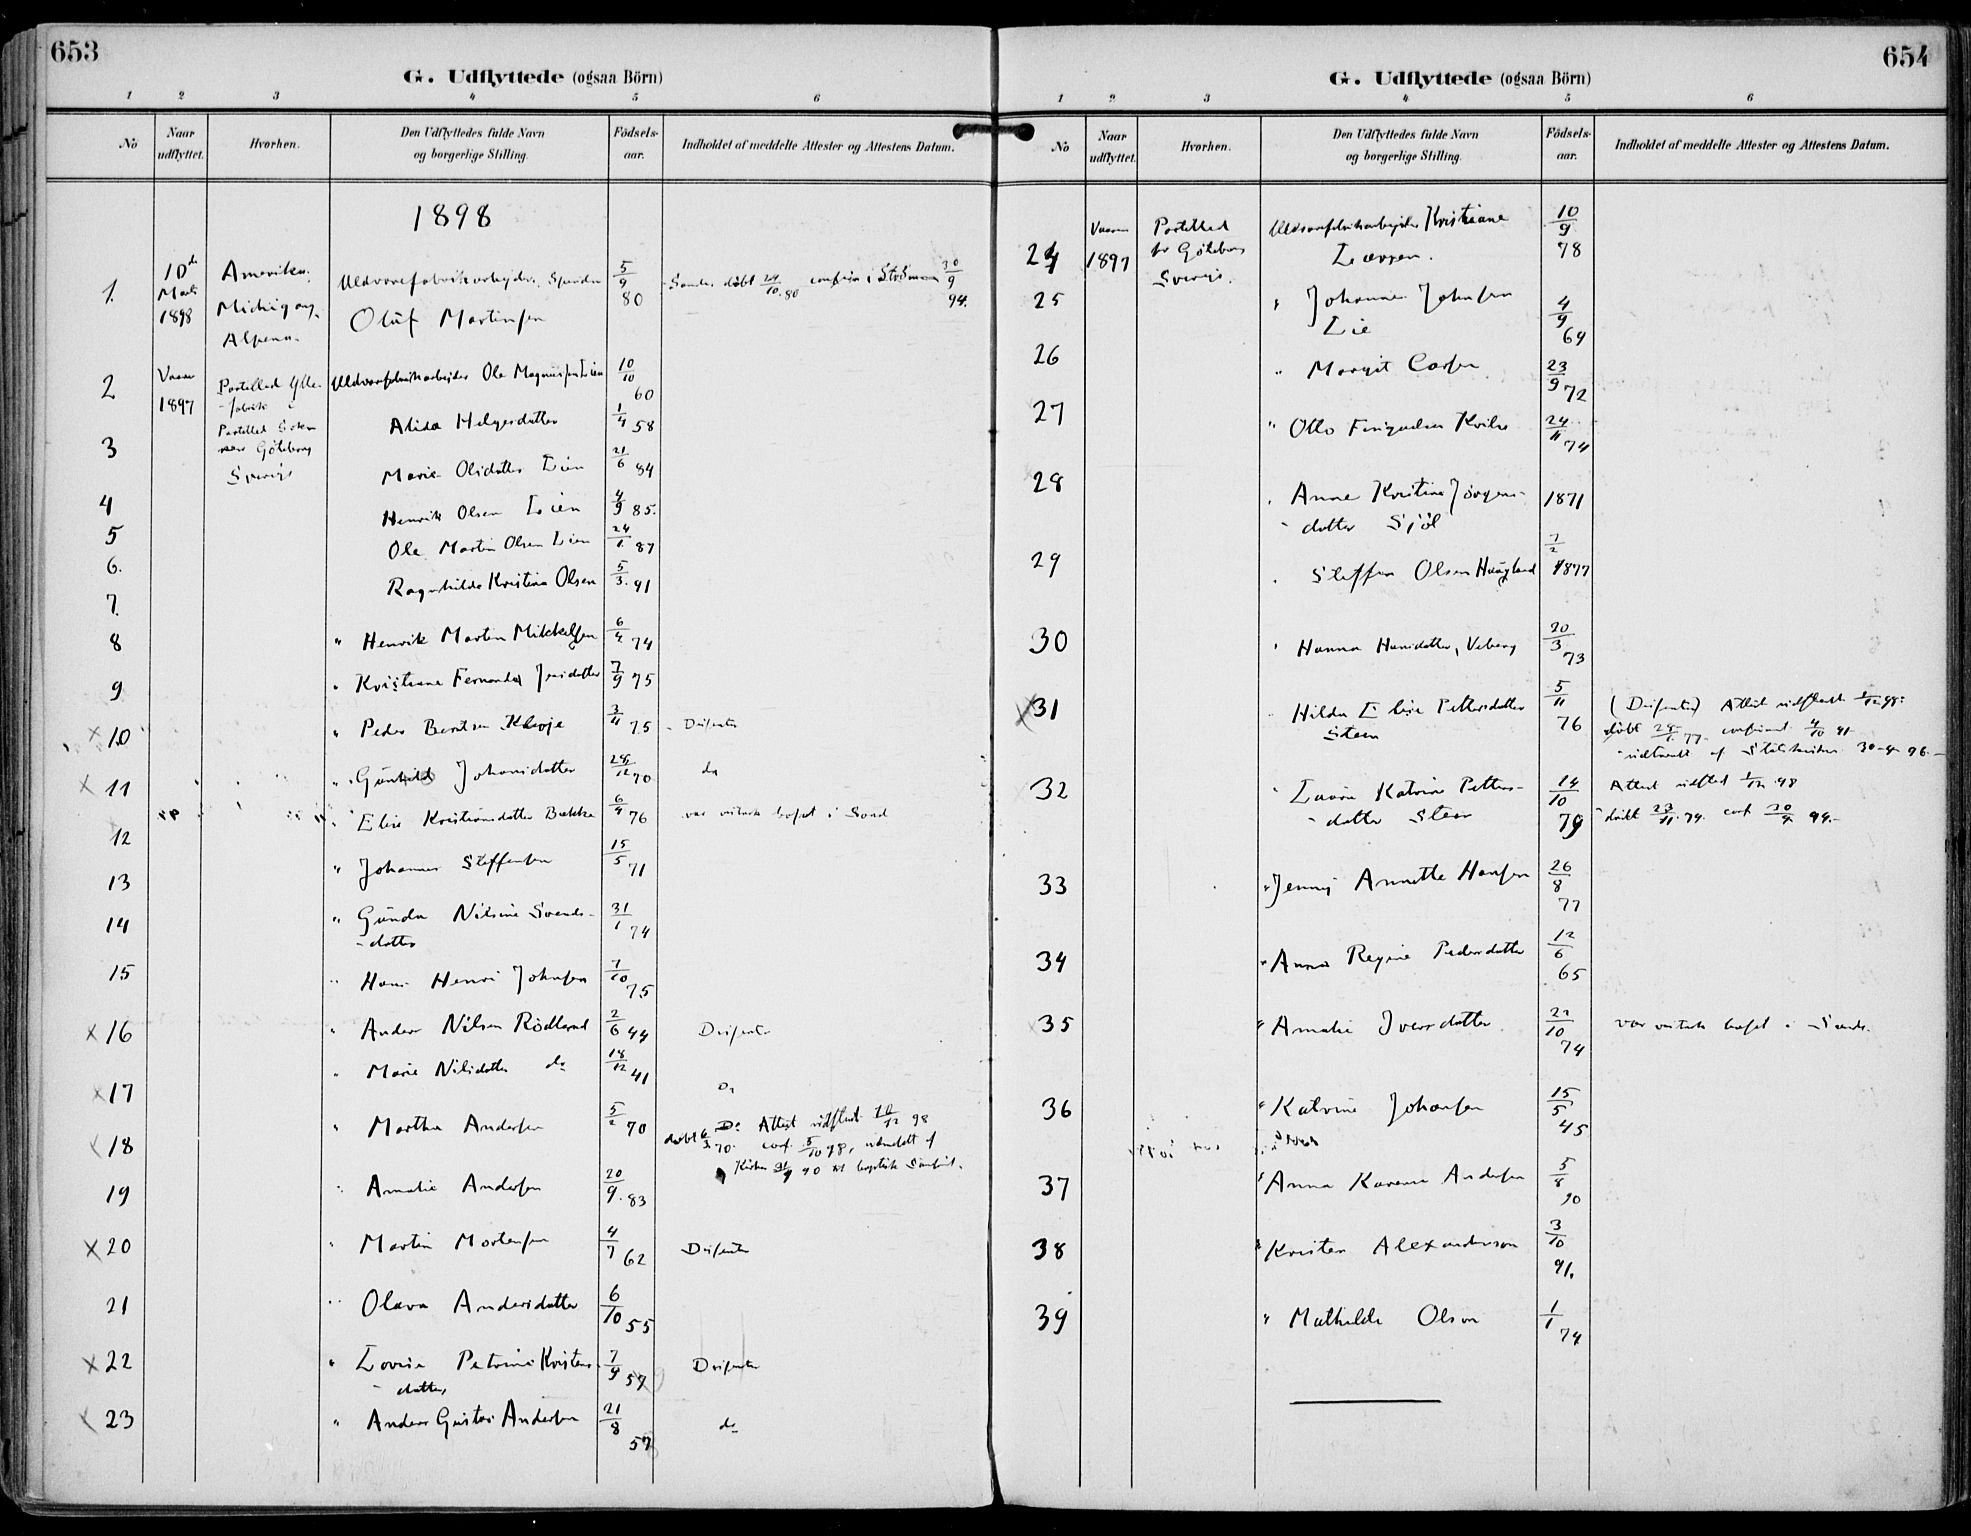 653
G. Udflyttede (ogsaa Börn)
1 2 3 4 5 6
No
Naar udflyttet.
Hvorhen.
Den Udflyttedes fulde Navn
og borgerlige Stilling.
Födsels-
aar.
Indholdet af meddelte Attester og Attestens Datum.
1898
1. 10de Marts 1898 Amerika. Michigan, Alpena. Uldvarefabrikarbeider, Oluf Martinsen 5/9 80 döbt 24/10 80 30/9 94.
2 Vaaren 1897 Uldvarefabrikarbeider Ole Magnussen Lien 10/10 60
Partilled
Göteborg
Sverige
3 Alida Helgesdatter 1/4 58
Marie Olsdatter Lien 21/6 84
4 Henrik Olsen Lien 4/9 85.
5 Ole Martin Olsen Lien 24/1 87
6. Ragnhilda Kristina Olsen 5/3. 91
7.
8 " Henrik Martin Mikkelsen 6/4 74
9 " Kristiane 7/9 75
x 10 " Peder Berntsen 3/11 75 - Disenter
x 11 " Gunhild Johansdatter 12 70 do
12 " Elise Kristiansdatter Bakke 6/4 76 var bosat i Sand
13 " Johannes Steffensen 15/5 71
14 " Gunda Nilsine Svends-
-datter 31/1 74
15 " Hans Henri Johnsen 7/10 75
x 16 " Anders Nilsen Rödland 2/6 44 Disenter
x 17 " Marie Nilsdatter do 18/12 41 Do
18 " Martha Andersen 5/2 70 Do Attest udstedt 10/12 98
döbt 6/3 70. conf. 5/10 98, udmeldt af
Kirken
19 " Amalie Andersen 20/9. 83
x 20 " Martin Mortensen 4/7 62 Disenter
21 " Olava Andersdatter 6/10 55
x 22 " Lovise Petrine Kristens-
-datter, 7/9 57 Disenter
23 " Anders Gustav Andersen 21/8 57 do
654
G. Udflyttede (ogsaa Börn)
1 2 3 4 5 6
No
Naar udflyttet.
Hvorhen.
Den Udflyttedes fulde Navn
og borgerlige Stilling.
Födsels-
aar.
Indholdet af meddelte Attester og Attestens Datum.
24 Vaaren 1897 Partilled Göteborg Sverige. Uldvarefabrikarbeider Kristiane
Larsen. 10/9 78
25 " Johannes Johnsen
Lie 4/9 69
26 " Margit Carsen 23/9 72
27 " Otto 24/11 74
28 " Anne Kristine Jörgens-
-datter Sjöl 1871
29 " Steffen Olsen Haugland 7/2 1877
30 " Hanna Hansdatter, Viberg 20/3 73
x 31 " Hilda Elise Pettersdatter
Steen 5/11 76 (Disenter) Attest udstedt 1/12 98.
döbt 77. confirmert 4/10 91
udtraadt af Statskirken 30-4-96.
32 " Lovise Katrine Petters-
-datter Steen 14/10 79 Attest udsted 1/12 98
döbt 23/11. 79. conf 94.
33 " Jenny Annette Hansen 26/8 77
34 " Anna Regine Pedersdatter 12/6 65
35 " Amalie Iversdatter 10 74 var bosat i Sande.
36 " Katrine Johansen 15/5 45
37 " Anna Karene Andersen 5/8 90
38 " Kristen Alexandersen 3/10 91.
39 " Mathilde Olsen 1/1 74